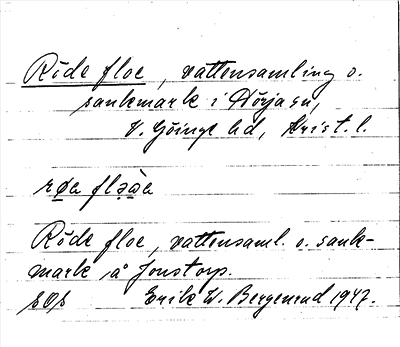 Röde floe, vattensamling o.
sankmark i Dörja sn,
V. Göinge hd, Krist. l.
røa fləàa
Röde floe, vattensaml. o. sank-
mark å Jonstorp.
sOs Erik W. Bergenrud 1947.